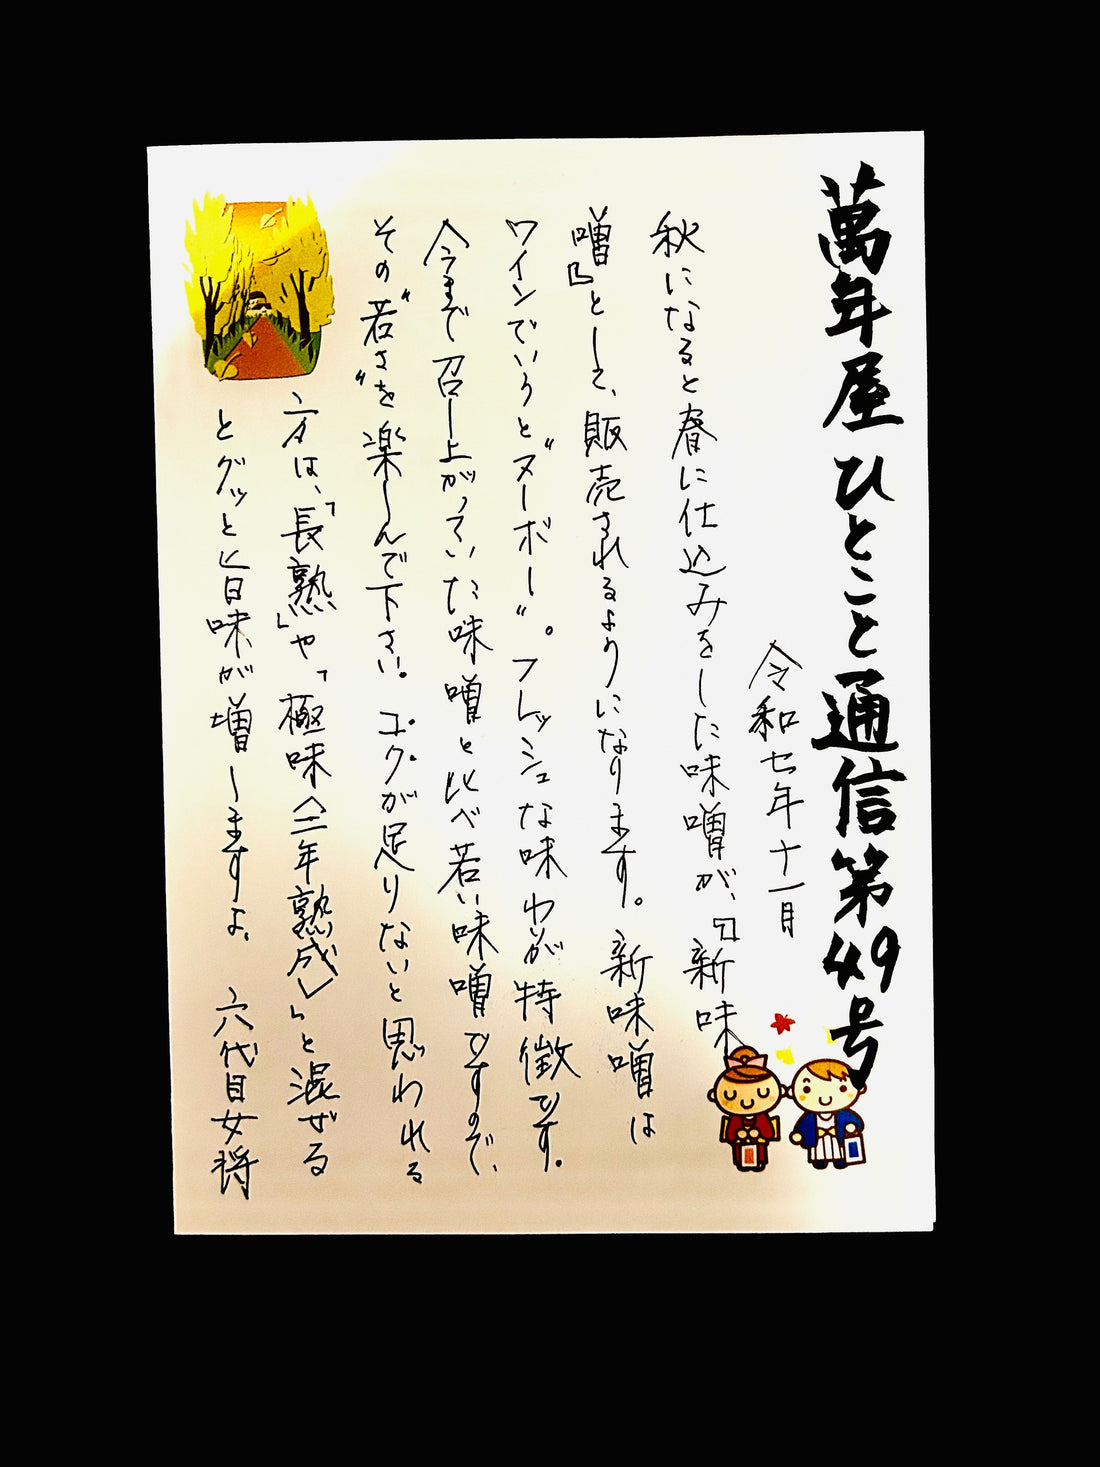 萬年屋ひとこと通信第49号
令和七年十一月
秋になると春に仕込みをした味噌が、『新味
噌』として、販売されるようになります。新味噌は
ワインでいうと"ヌーボー"。フレッシュな味わが特徴です。
今まで召し上がっていた味噌と比べ若い味噌ですので、
その"若さ"を楽しんで下さい。コクが足りないと思われる
方は、「長熟」や「極味〈三年熟成〉」と混ぜる
とグッと旨味が増しますよ。 六代目女将